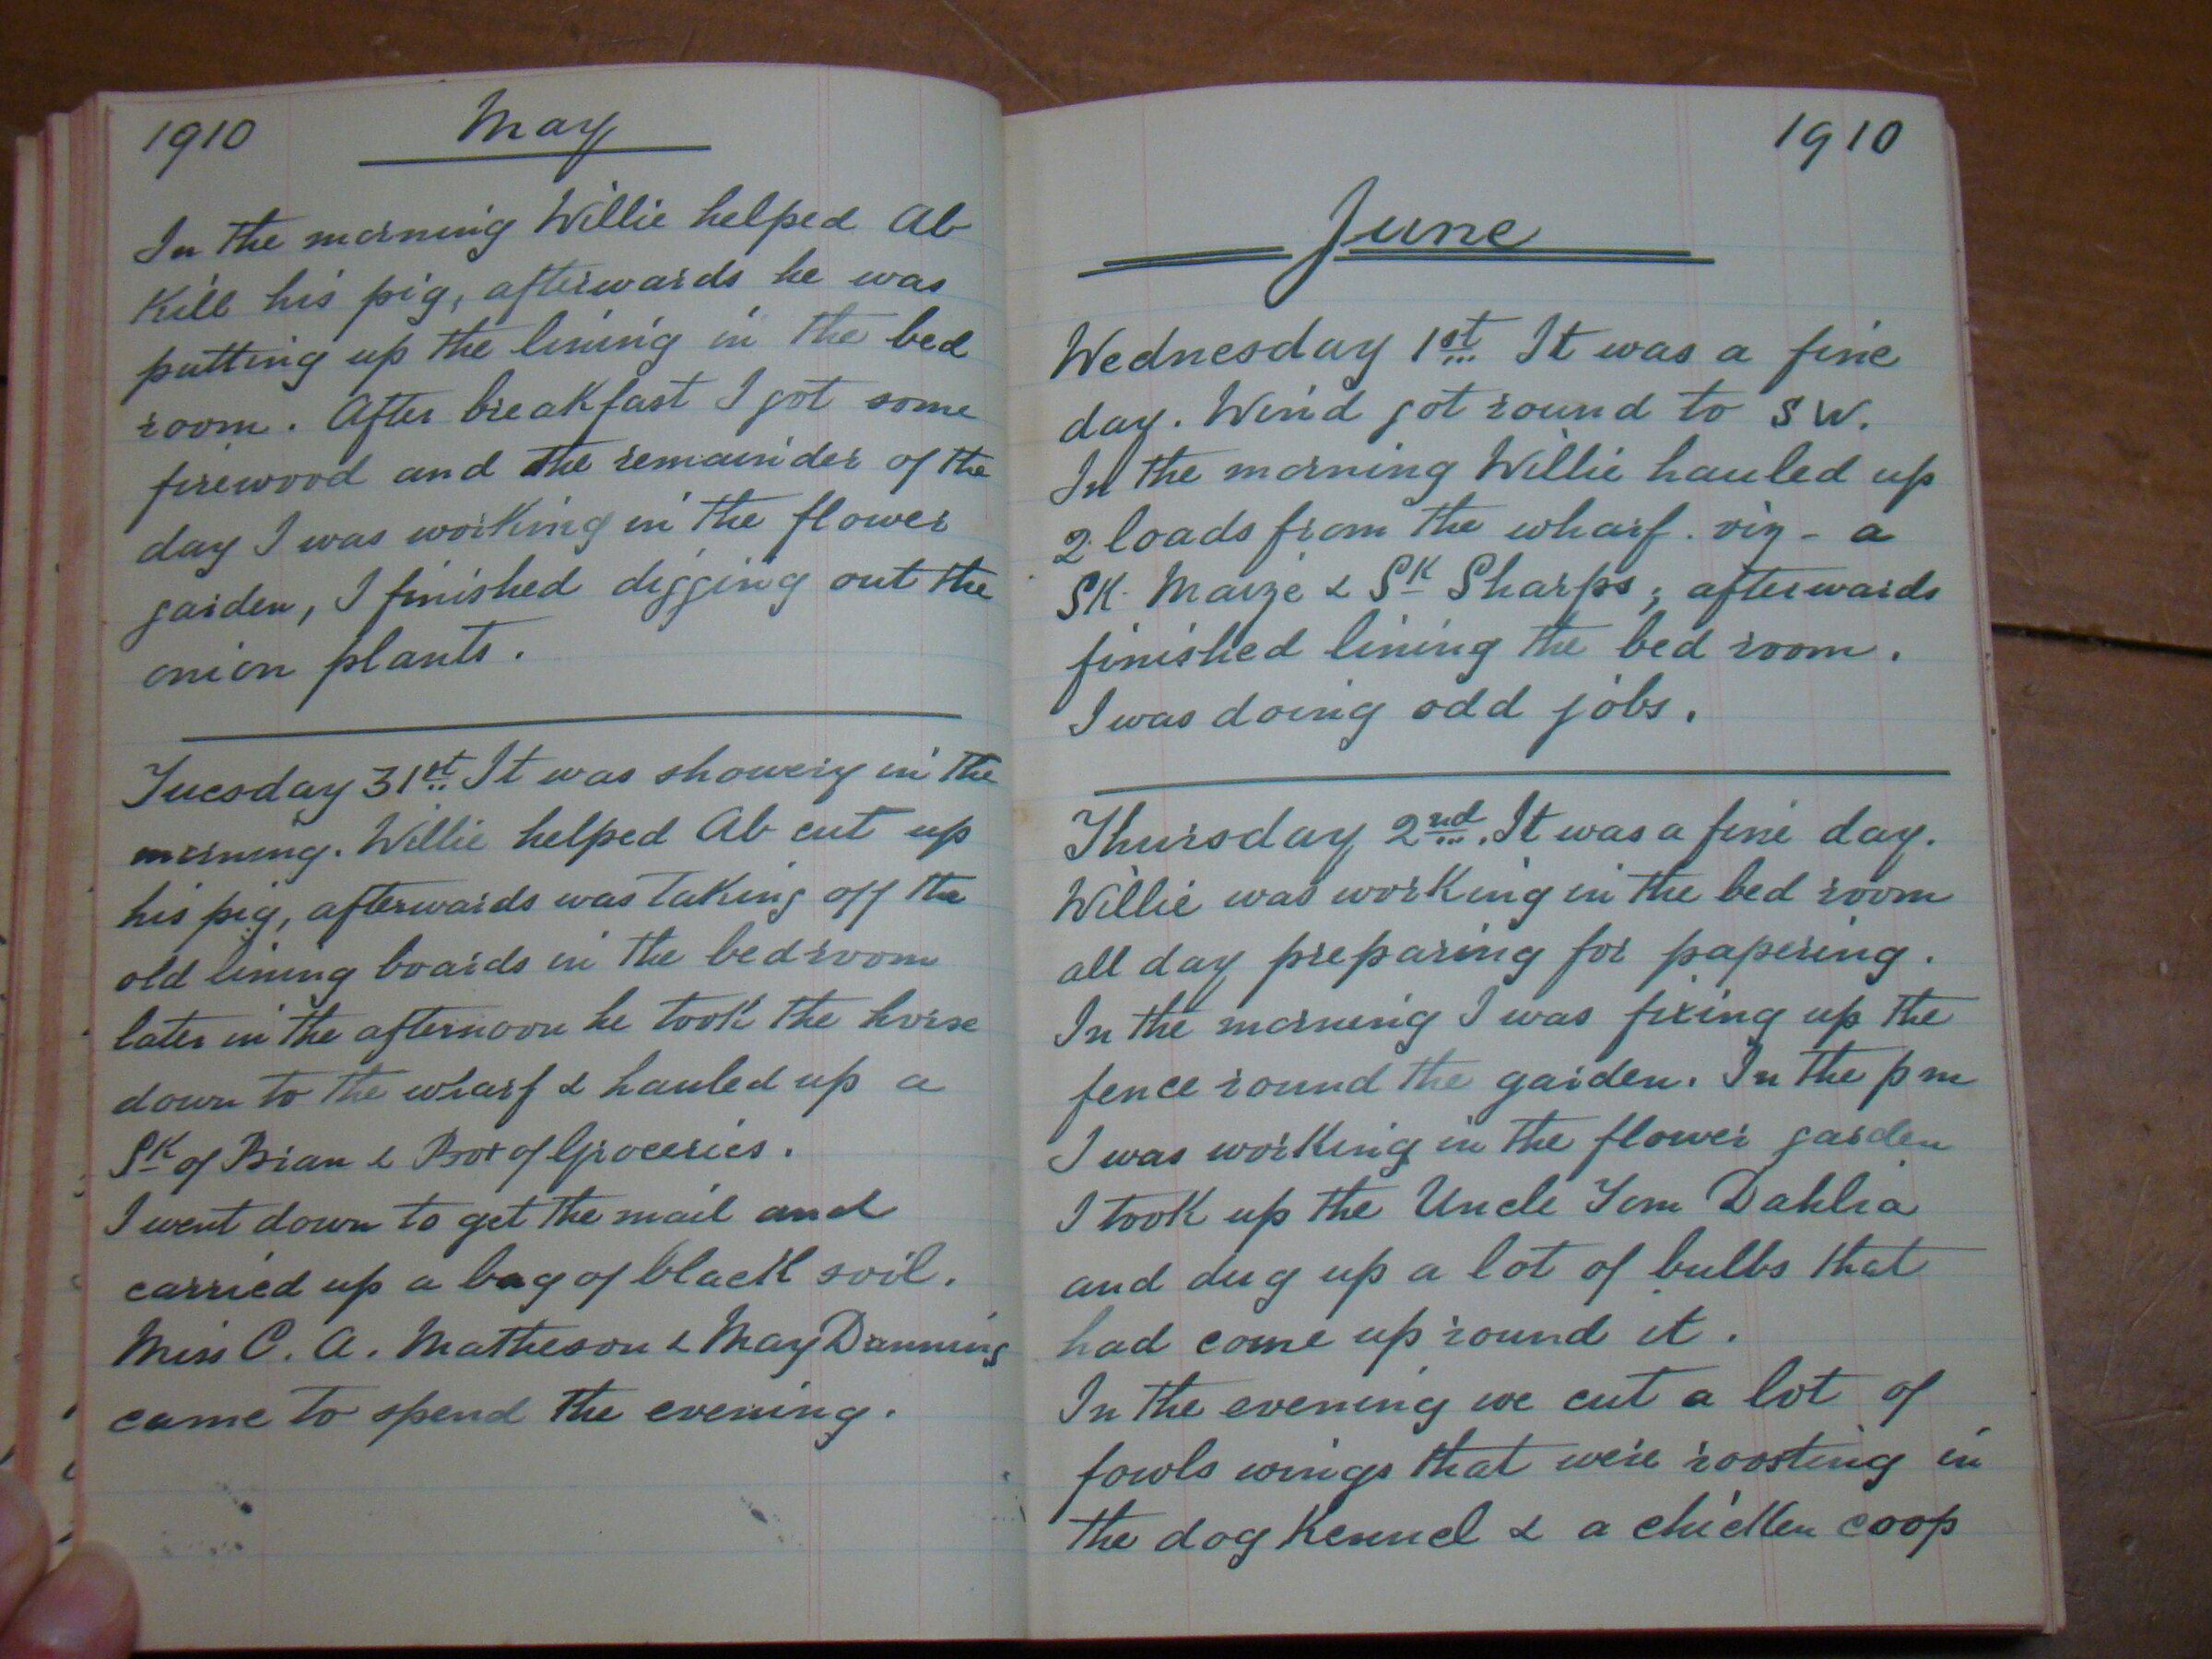 1910 May
In the morning Willie helped Ab
Kill his pig, afterwards he was
putting up the lining in the bed
room. After breakfast I got some
firewood and the remainder of the
day I was working in the flower
garden, I finished digging out the
onion plants.
Tuesday 31st. It was showery in the
morning. Willie helped Ab cut up
his pig, afterwards was taking off the
old lining boards in the bedroom
later in the afternoon he took the horse
down to the wharf & hauled up a
SK of Bran & Box of Groceries.
I went down to get the mail and
carried up a bag of black soil.
Miss C. A. Matheson & May Dunning
came to spend the evening.
1910
June
Wednesday 1st. It was a fine
day. Wind got round to SW.
In the morning Willie hauled up
2 loads from the wharf. viz - a
SK. Maize & SK Sharps; afterwards
finished lining the bed room.
I was doing odd jobs.
Thursday 2nd. It was a fine day.
Willie was working in the bed room
all day preparing for papering.
In the morning I was fixing up the
fence round the garden. In the pm
I was working in the flower garden
I took up the Uncle Tom Dahlia
and dug up a lot of bulbs that
had come up round it.
In the evening we cut a lot of
fowls wings that were roosting in
the dog Kennel & a chicken coop